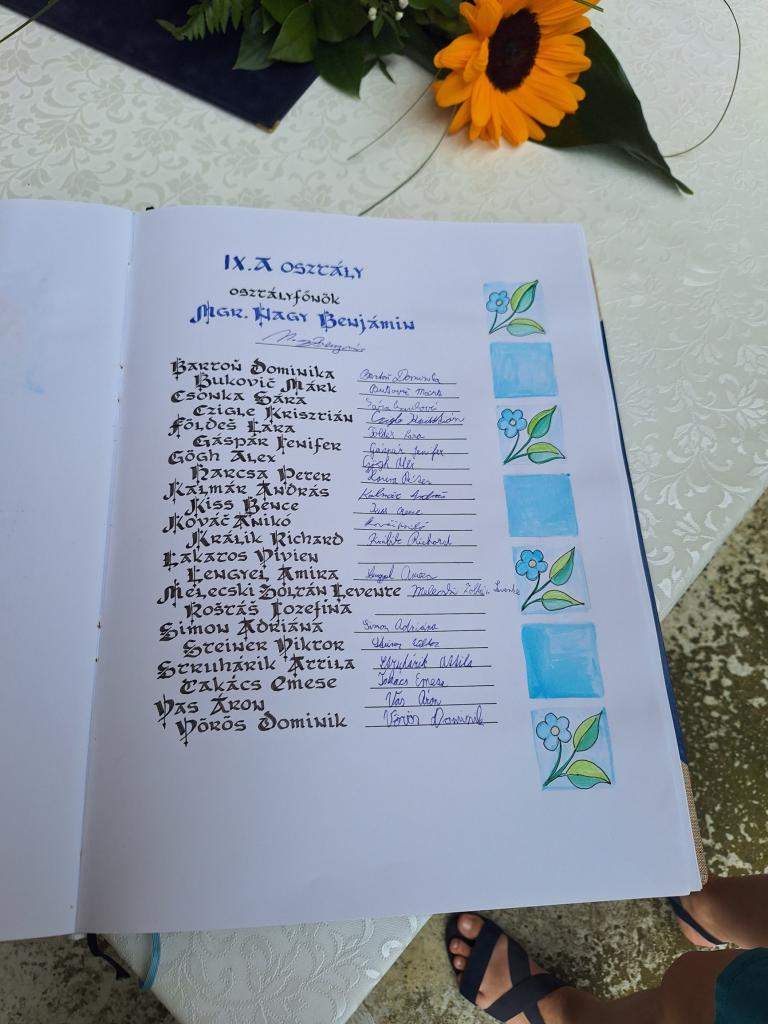 IX.A OSZTÁLY
OSZTÁLYFŐNÖK
MGR. NAGY BENJÁMIN
BARTOŇ DOMINIKA Bartoň Dominika
BUKOVIČ MÁRK Bukovič Márk
CSONKA SÁRA
CZIGLE KRISZTIÁN Czigle Krisztián
FÖLDEŠ LARA Földeš Lara
GÁSPÁR JENIFER Gáspár Jenifer
GÖGH ALEX Gögh Alex
HARCSA PETER
KALMÁR ANDRÁS Kalmár András
KISS BENCE Kiss Bence
KOVÁČ ANIKÓ
KRÁLIK RICHARD Králik Richard
LAKATOS VIVIEN
LENGYEL AMIRA Lengyel Amira
MELECSKI ZOLTÁN LEVENTE
ROŠTÁŠ JOZEFINA
SIMON ADRIÁNA Simon Adriána
STEINER VIKTOR
STRUHÁRIK ATTILA Struhárik Attila
TAKÁCS EMESE Takács Emese
VAS ÁRON Vas Áron
VÖRÖS DOMINIK Vörös Dominik